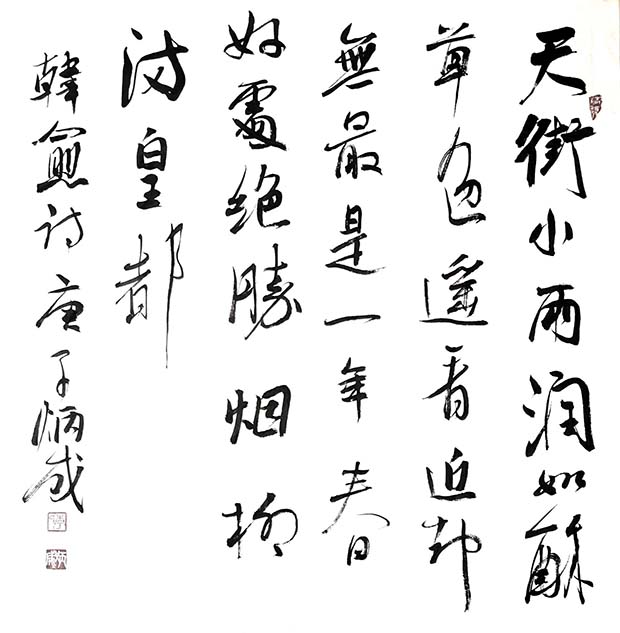 天街小雨润如酥
草色遥看近却
無最是一年春
好處绝勝烟柳
满皇都
韓愈诗庚子炳成